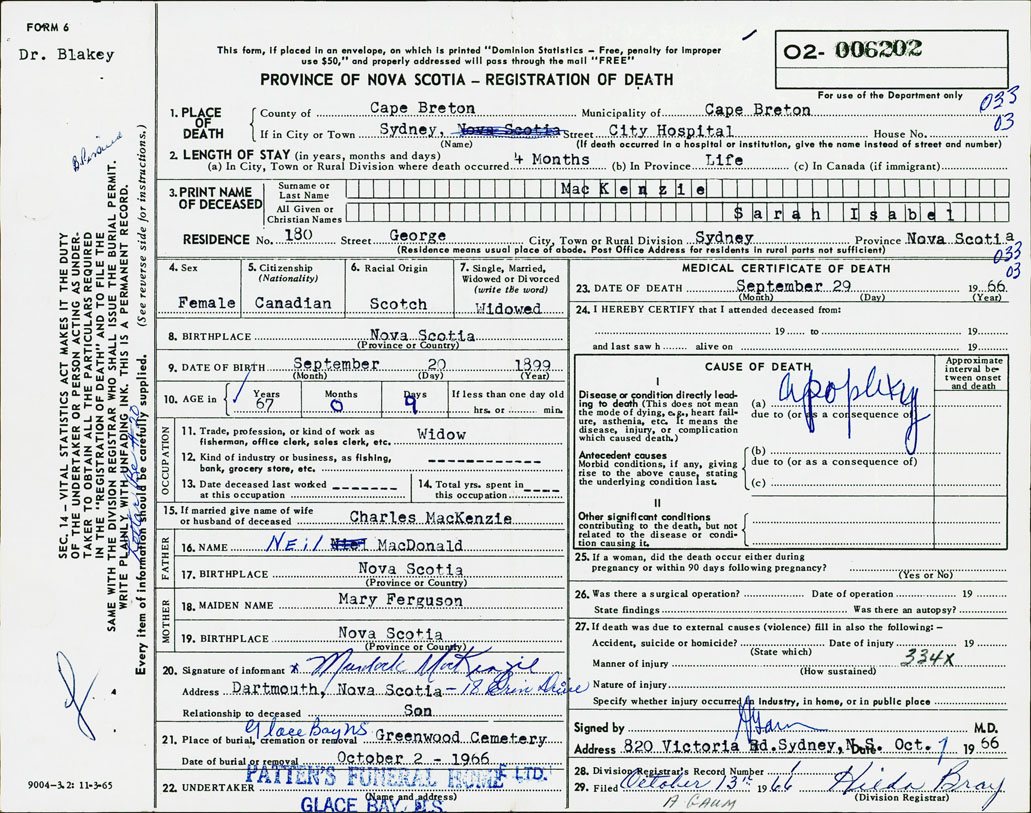 FORM 6
Dr. Blakey
This form, if placed in an envelope, on which is printed "Dominion Statistics – Free, penalty for improper
use $50," and properly addressed will pass through the mail "FREE"
PROVINCE OF NOVA SCOTIA – REGISTRATION OF DEATH
02- 006202
For use of the Department only
033
03
1. PLACE OF DEATH
County of Cape Breton Municipality of Cape Breton
If in City or Town Sydney, Nova Scotia Street City Hospital House No.
(Name) (If death occurred in a hospital or institution, give the name instead of street and number)
2. LENGTH OF STAY (in years, months and days)
(a) In City, Town or Rural Division where death occurred 4 Months (b) In Province Life (c) In Canada (if immigrant)
3. PRINT NAME OF DECEASED
Surname or Last Name MacKenzie
All Given or Christian Names Sarah Isabel
RESIDENCE No. 180 Street George City, Town or Rural Division Sydney Province Nova Scotia
(Residence means usual place of abode. Post Office Address for residents in rural parts not sufficient)
033
03
4. Sex
Female
5. Citizenship
(Nationality)
Canadian
6. Racial Origin
Scotch
7. Single, Married,
Widowed or Divorced
(write the word)
Widowed
8. BIRTHPLACE Nova Scotia
(Province or Country)
9. DATE OF BIRTH September 20 1899
(Month) (Day) (Year)
10. AGE in
Years Months Days If less than one day old
67 0 9 hrs. or min.
OCCUPATION
11. Trade, profession, or kind of work as
fisherman, office clerk, sales clerk, etc. Widow
12. Kind of industry or business, as fishing,
bank, grocery store, etc.
13. Date deceased last worked
at this occupation
14. Total yrs. spent in
this occupation
15. If married give name of wife
or husband of deceased Charles MacKenzie
FATHER
16. NAME NEIL Niel MacDonald
17. BIRTHPLACE Nova Scotia
(Province or Country)
MOTHER
18. MAIDEN NAME Mary Ferguson
19. BIRTHPLACE Nova Scotia
(Province or Country)
20. Signature of informant x Murdock MacKenzie
Address Dartmouth, Nova Scotia – 18 Erin Drive
Relationship to deceased Son
Glace Bay NS
21. Place of burial, cremation or removal Greenwood Cemetery
Date of burial or removal October 2 - 1966
22. UNDERTAKER PATTEN'S FUNERAL HOME LTD.
(Name and address)
GLACE BAY, N.S.
MEDICAL CERTIFICATE OF DEATH
23. DATE OF DEATH September 29 1966
(Month) (Day) (Year)
24. I HEREBY CERTIFY that I attended deceased from:
19 to 19
and last saw h alive on 19
CAUSE OF DEATH
Approximate interval between onset and death
I
Disease or condition directly lead-
ing to death (This does not mean
the mode of dying, e.g., heart fail-
ure, asthenia, etc. It means the
disease, injury, or complication
which caused death.)
(a) apoplexy
due to (or as a consequence of)
Antecedent causes
Morbid conditions, if any, giving
rise to the above cause, stating
the underlying condition last.
(b)
due to (or as a consequence of)
(c)
II
Other significant conditions
contributing to the death, but not
related to the disease or condi-
tion causing it.
25. If a woman, did the death occur either during
pregnancy or within 90 days following pregnancy?
(Yes or No)
26. Was there a surgical operation? Date of operation 19
State findings Was there an autopsy?
27. If death was due to external causes (violence) fill in also the following: –
Accident, suicide or homicide? Date of injury 19
(State which)
334X
Manner of injury
(How sustained)
Nature of injury
Specify whether injury occurred in Industry, in home, or in public place
Signed by M.D.
Address 820 Victoria Rd. Sydney, N.S. Date Oct. 7 1966
28. Division Registrar's Record Number
29. Filed October 13th 1966 Hilda Bray
(Division Registrar)
A GAUM
SEC. 14 – VITAL STATISTICS ACT MAKES IT THE DUTY
OF THE UNDERTAKER OR PERSON ACTING AS UNDER-
TAKER TO OBTAIN ALL THE PARTICULARS REQUIRED
IN THE "REGISTRATION OF DEATH" AND TO FILE THE
SAME WITH THE DIVISION REGISTRAR WHO SHALL ISSUE THE BURIAL PERMIT.
WRITE PLAINLY WITH UNFADING INK. THIS IS A PERMANENT RECORD.
Every item of information should be carefully supplied. (See reverse side for instructions.)
9004-3.2: 11-3-65